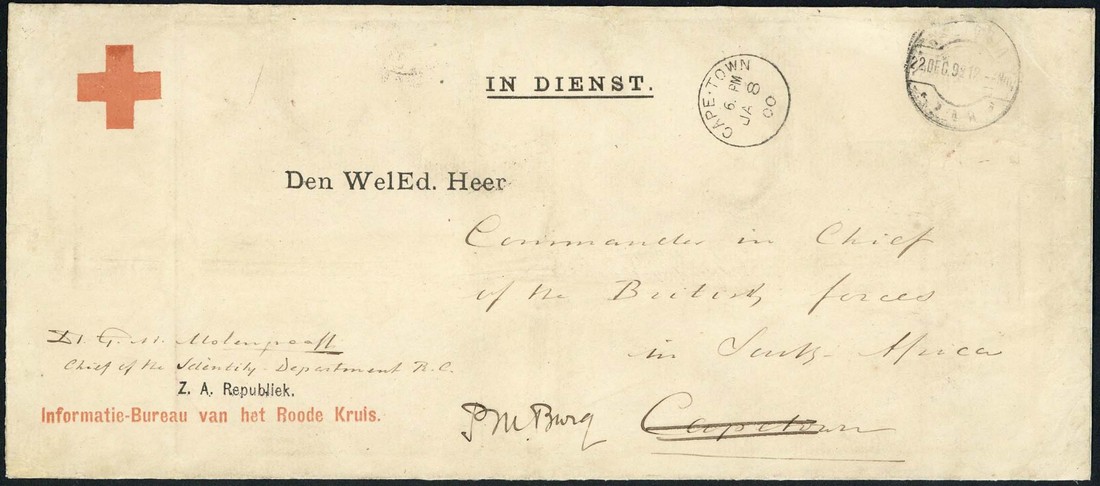 IN DIENST.
CAPE·TOWN
6. PM
JA 8
00
22.DEC.99
Den WelEd. Heer
Commander in Chief
of the British forces
in South Africa
Capetown
P.M.Burg
Molengraaff
Chief of the Identity Department R.C.
Z. A. Republiek.
Informatie-Bureau van het Roode Kruis.